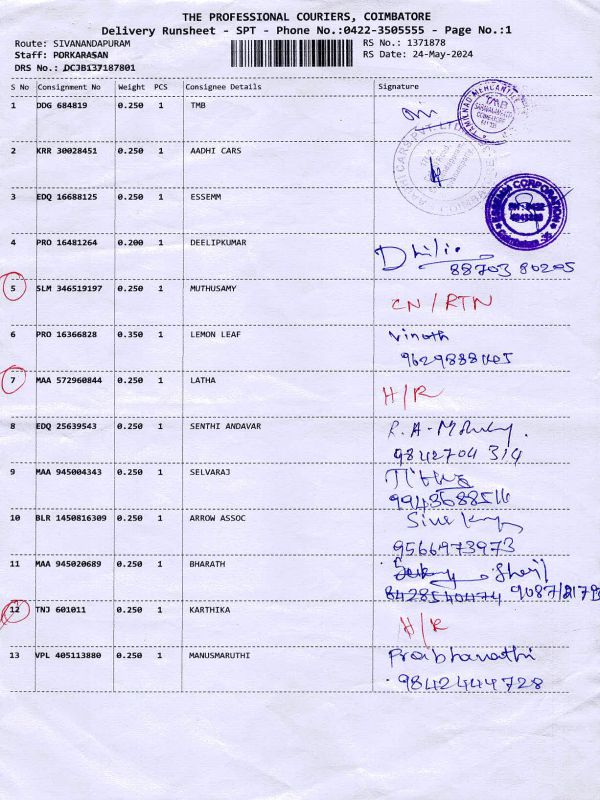 THE PROFESSIONAL COURIERS, COIMBATORE
Delivery Runsheet - SPT - Phone No.:0422-3505555 - Page No.:1
Route: SIVANANDAPURAM RS No.: 1371878
Staff: PORKARASAN RS Date: 24-May-2024
DRS No.: DCJB137187801
S No Consignment No Weight PCS Consignee Details Signature
1 DDG 684819 0.250 1 TMB
2 KRR 30028451 0.250 1 AADHI CARS
3 EDQ 16688125 0.250 1 ESSEMM
4 PRO 16481264 0.200 1 DEELIPKUMAR
88703 80205
5 SLM 346519197 0.250 1 MUTHUSAMY CN/RTN
6 PRO 16366828 0.350 1 LEMON LEAF Vinoth
7 MAA 572960844 0.250 1 LATHA H/R
8 EDQ 25639543 0.250 1 SENTHI ANDAVAR
9842704 314
9 MAA 945004343 0.250 1 SELVARAJ
10 BLR 1450816309 0.250 1 ARROW ASSOC
9566973973
11 MAA 945020689 0.250 1 BHARATH
12 TNJ 601011 0.250 1 KARTHIKA H/R
13 VPL 405113880 0.250 1 MANUSMARUTHI
9842444728